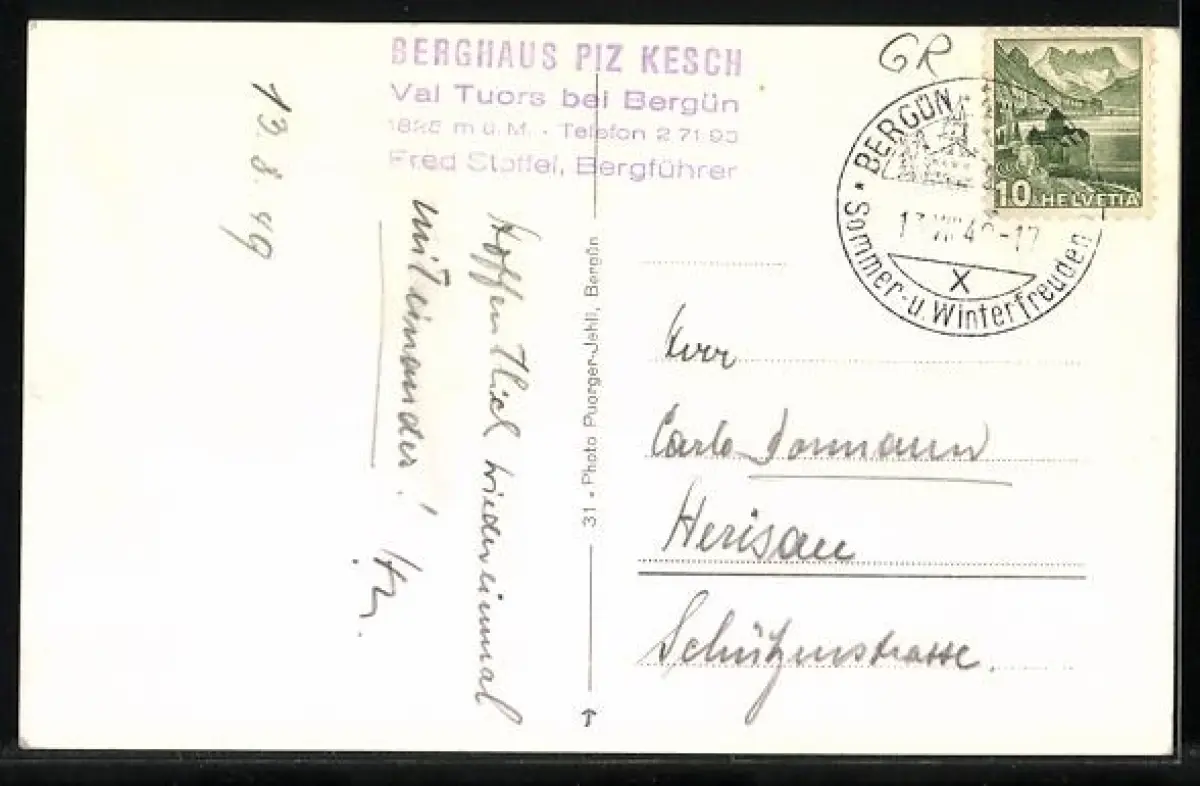 BERGHAUS PIZ KESCH
Val Tuors bei Bergün
m ü. M. - Telefon 2 71 93
Fred Stoffel, Bergführer
GR
BERGÜN
Sommer- u. Winterfreuden
X
10 HELVETIA
13. 8. 49
Hoffentlich wiedereinmal
miteinander!
31 • Photo Puorger-Jehli, Bergün
Herr
Carlo Dormann
Herisau
Schützenstrasse.